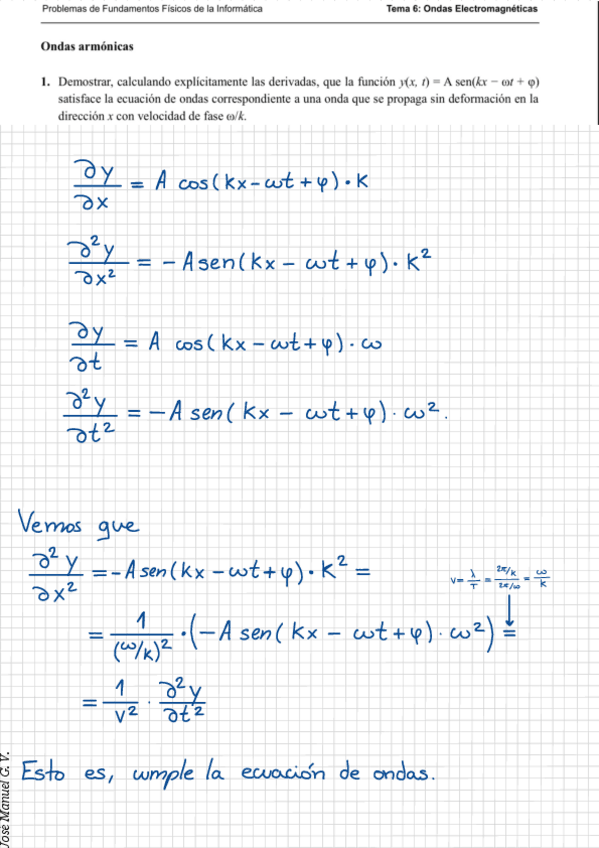 Problemas de Fundamentos Físicos de la Informática Tema 6: Ondas Electromagnéticas
Ondas armónicas
1. Demostrar, calculando explícitamente las derivadas, que la función y(x, t) = A sen(kx − ωt + φ)
satisface la ecuación de ondas correspondiente a una onda que se propaga sin deformación en la
dirección x con velocidad de fase ω/k.
∂y/∂x = A cos(kx − ωt + φ) · k
∂²y/∂x² = − A sen(kx − ωt + φ) · k²
∂y/∂t = A cos(kx − ωt + φ) · ω
∂²y/∂t² = − A sen(kx − ωt + φ) · ω².
Vemos que
∂²y/∂x² = − A sen(kx − ωt + φ) · k² =
v = λ/T = (2π/k)/(2π/ω) = ω/k
= 1/(ω/k)² · (− A sen(kx − ωt + φ) · ω²) =
= 1/v² · ∂²y/∂t²
Esto es, cumple la ecuación de ondas.
José Manuel G. V.